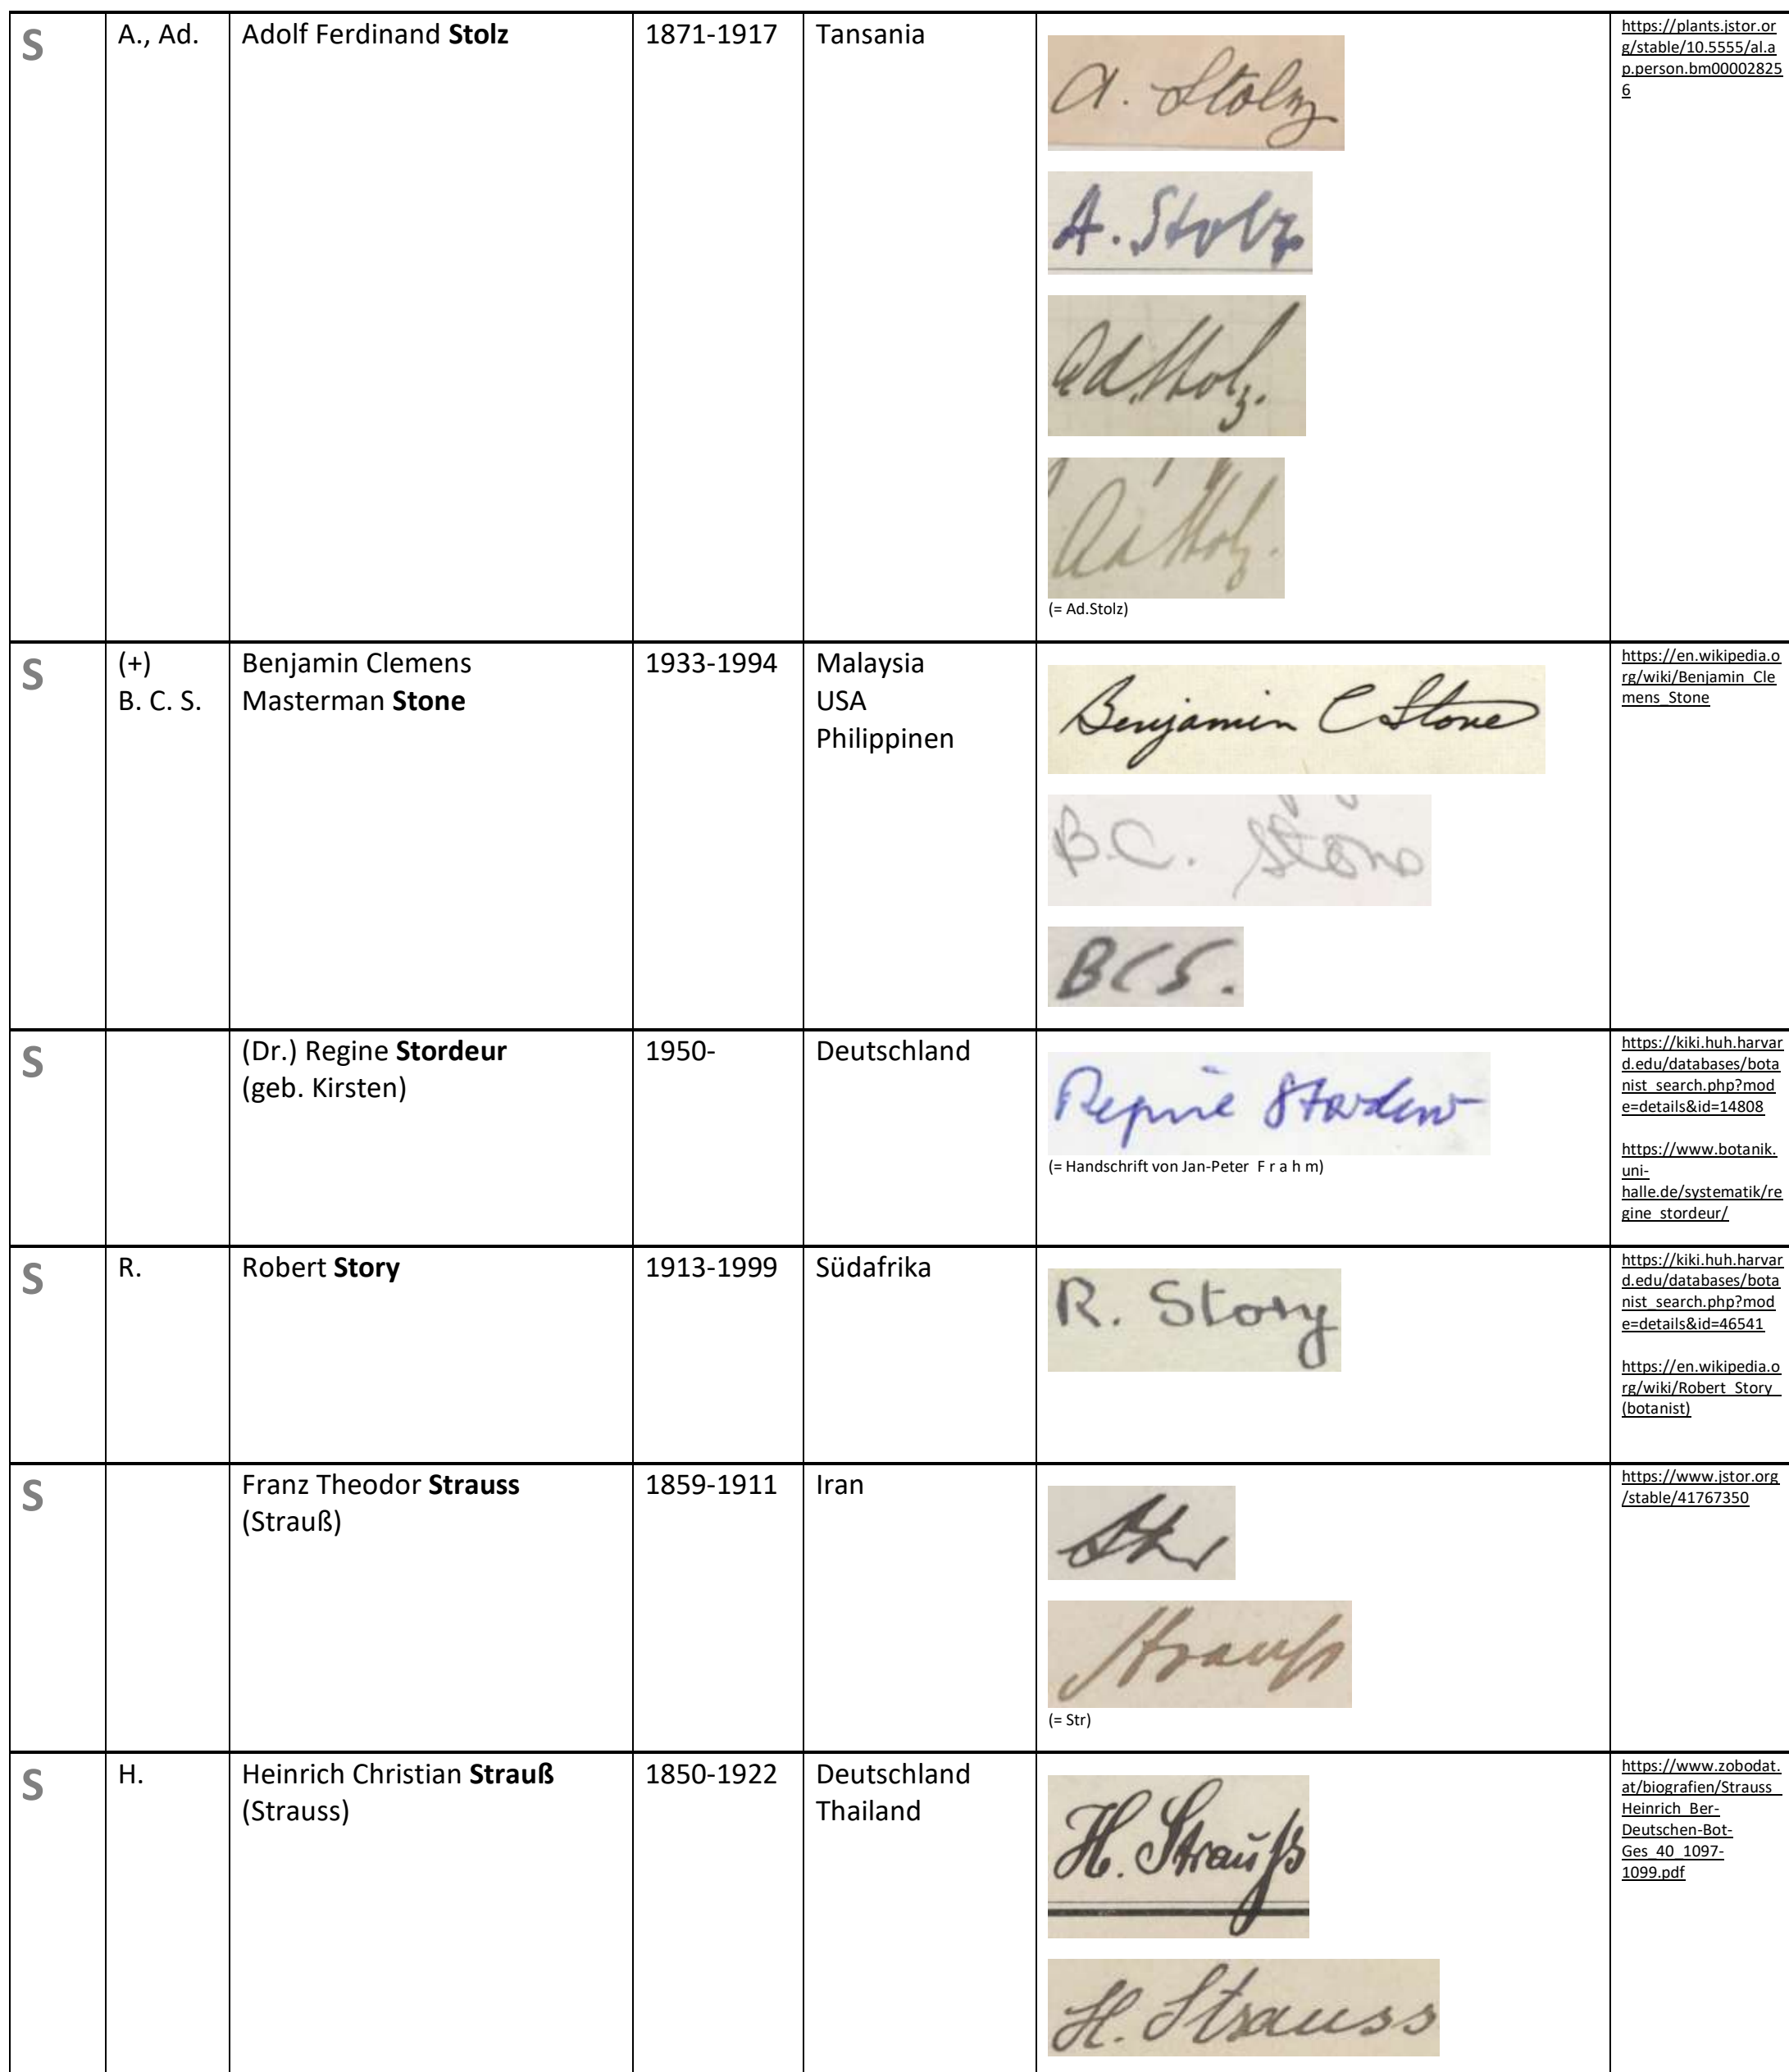 S
A., Ad.
Adolf Ferdinand Stolz
1871-1917
Tansania
A. Stolz
A. Stolz
Ad. Stolz.
Ad Stolz.
(= Ad.Stolz)
https://plants.jstor.or
g/stable/10.5555/al.a
p.person.bm00002825
6
S
(+)
B. C. S.
Benjamin Clemens
Masterman Stone
1933-1994
Malaysia
USA
Philippinen
Benjamin C Stone
B.C. Stone
BCS.
https://en.wikipedia.o
rg/wiki/Benjamin_Cle
mens_Stone
S
(Dr.) Regine Stordeur
(geb. Kirsten)
1950-
Deutschland
Regine Stordeur
(= Handschrift von Jan-Peter F r a h m)
https://kiki.huh.harvar
d.edu/databases/bota
nist_search.php?mod
e=details&id=14808
https://www.botanik.
uni-
halle.de/systematik/re
gine_stordeur/
S
R.
Robert Story
1913-1999
Südafrika
R. Story
https://kiki.huh.harvar
d.edu/databases/bota
nist_search.php?mod
e=details&id=46541
https://en.wikipedia.o
rg/wiki/Robert_Story_
(botanist)
S
Franz Theodor Strauss
(Strauß)
1859-1911
Iran
Str
Strauß
(= Str)
https://www.jstor.org
/stable/41767350
S
H.
Heinrich Christian Strauß
(Strauss)
1850-1922
Deutschland
Thailand
H. Strauß
H. Strauss
https://www.zobodat.
at/biografien/Strauss_
Heinrich_Ber-
Deutschen-Bot-
Ges_40_1097-
1099.pdf